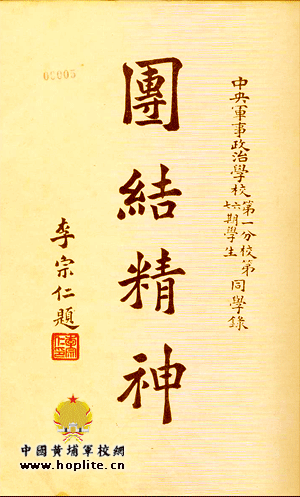 中央軍事政治學校第一分校第
六七期學生
同學錄
團結精神
李宗仁題
中國黃埔軍校網
www.hoplite.cn